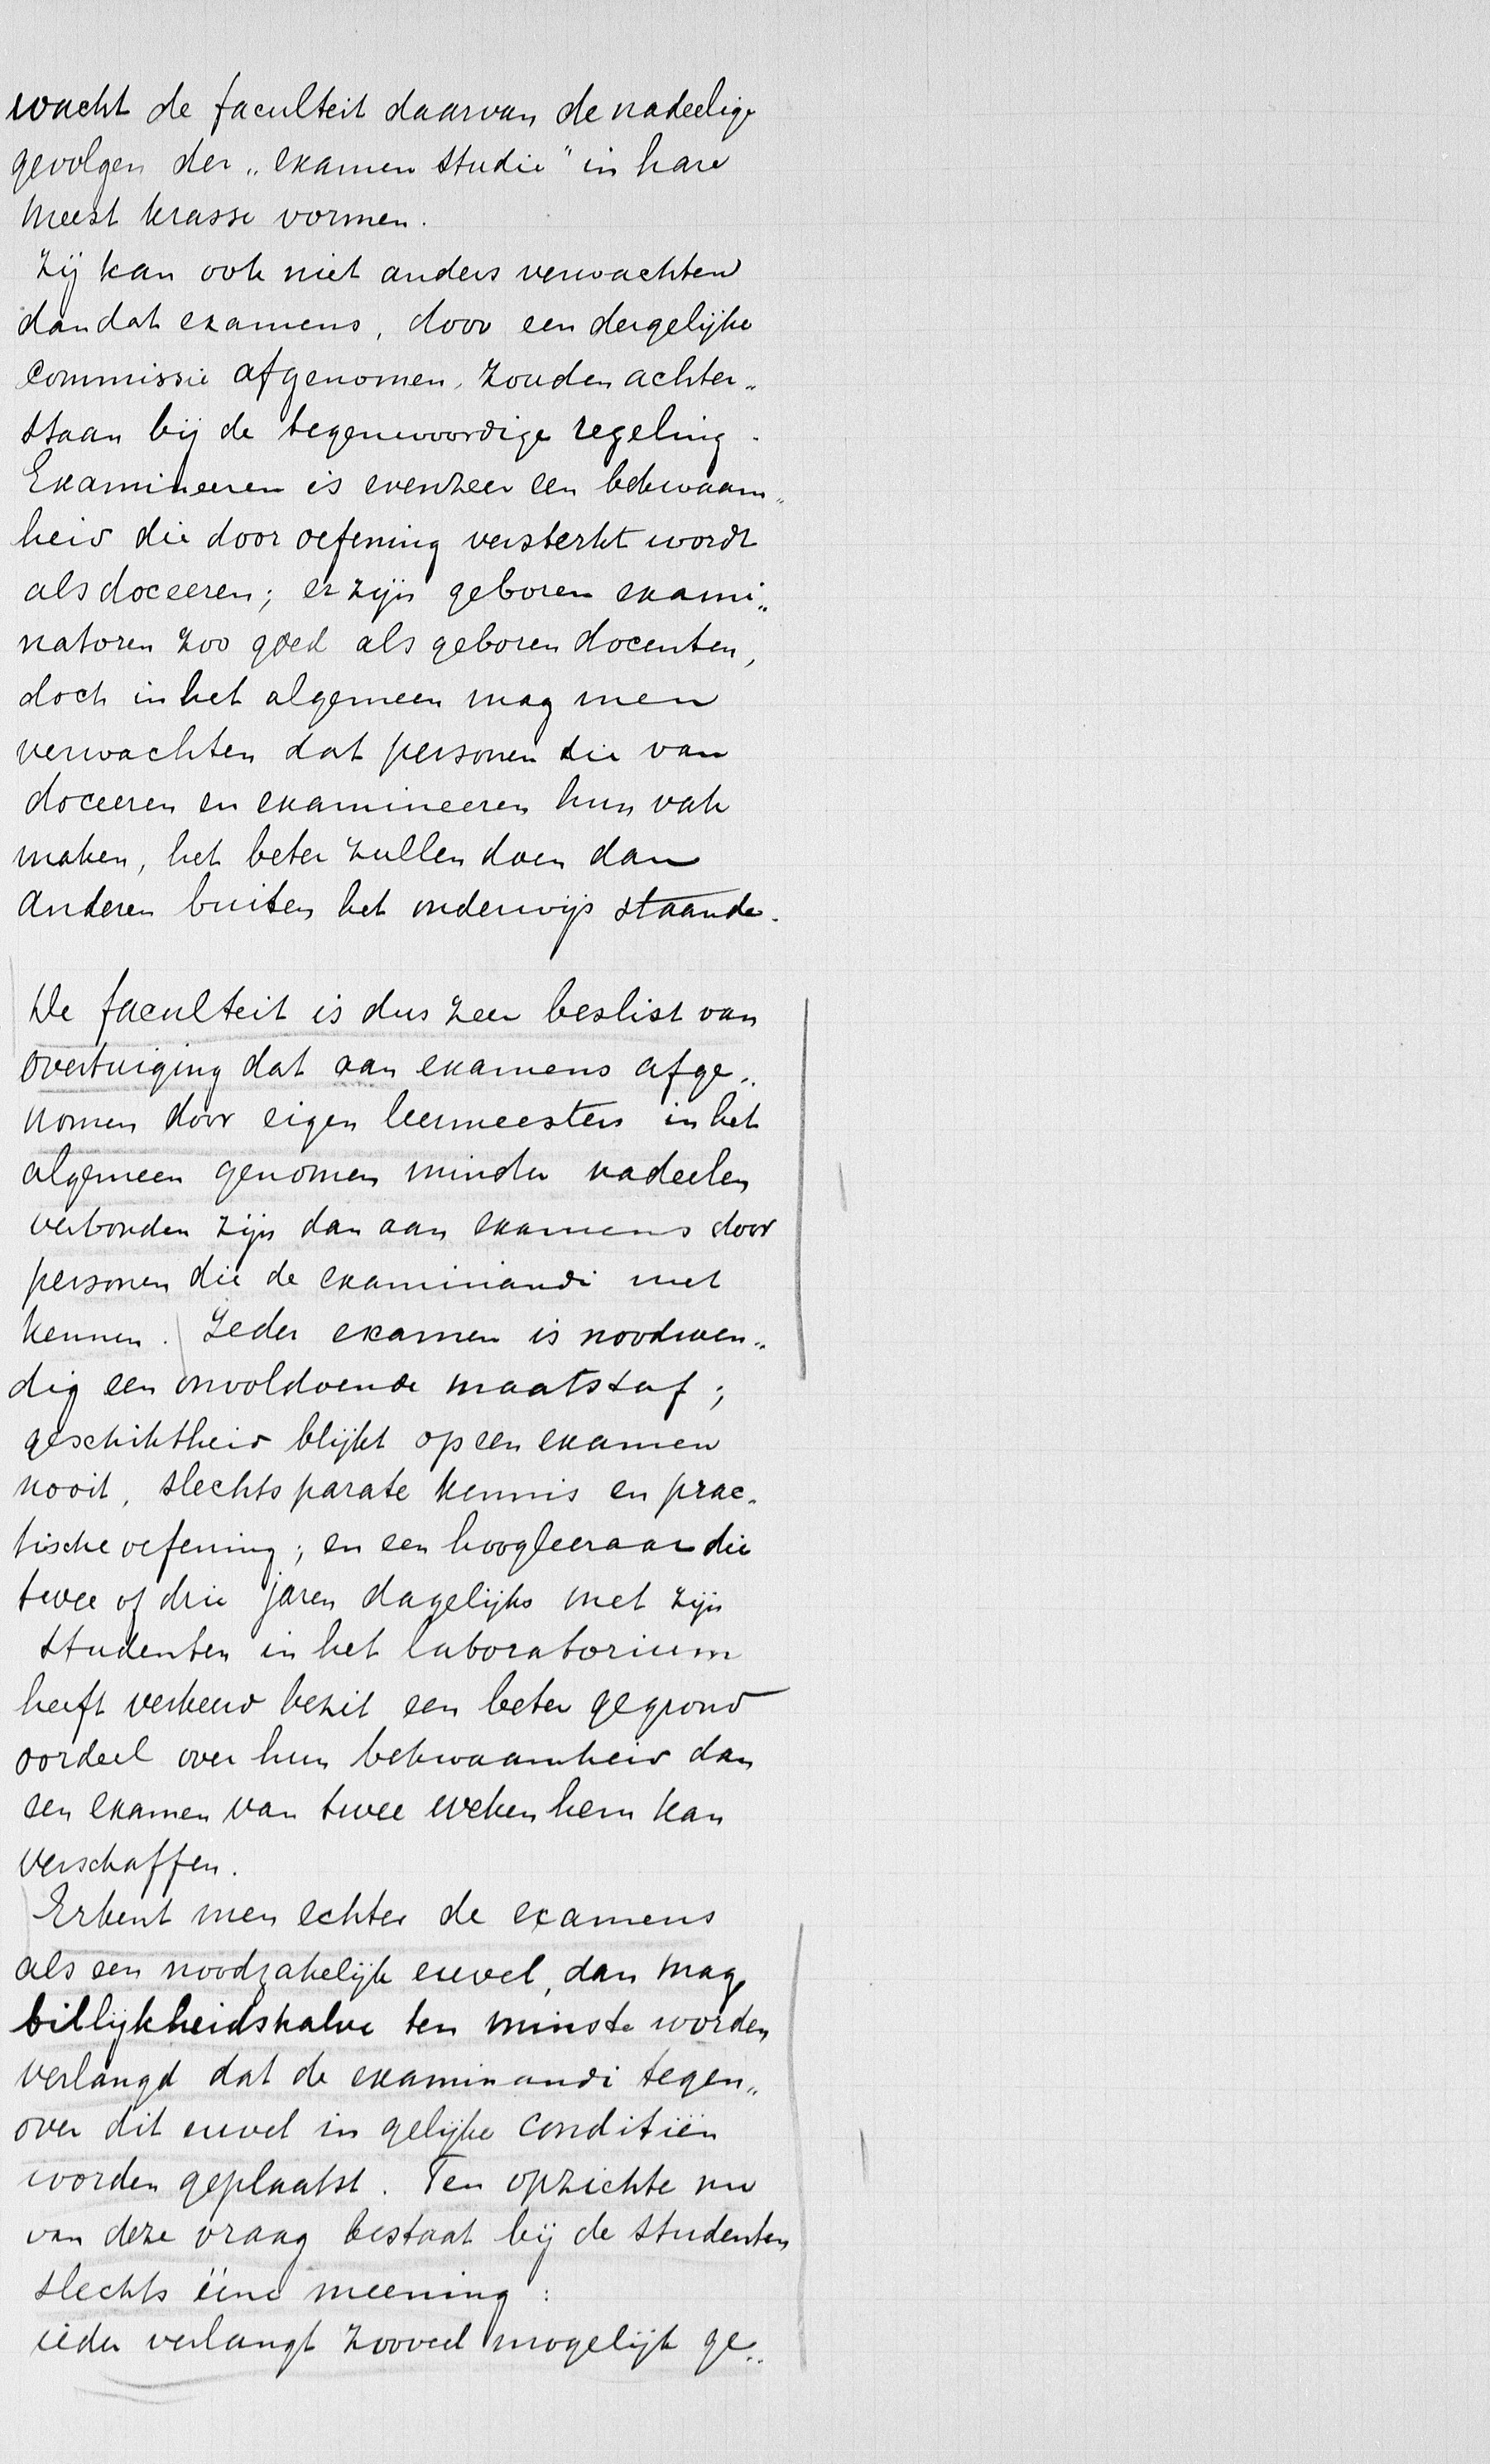 wacht de faculteit daarvan de nadeelige
gevolgen der „examen studie" in hare
meest krasse vormen.
Zij kan ook niet anders verwachten
dan dat examens, door een dergelijke
commissie afgenomen, zouden achter„
staan bij de tegenwoordige regeling.
Examineeren is evenzeer een bekwaam„
heid die door oefening versterkt wordt
als doceeren; er zijn geboren exami„
natoren zoo goed als geboren docenten,
doch in het algemeen mag men
verwachten dat personen die van
doceeren en examineeren hun vak
maken, het beter zullen doen dan
anderen buiten het onderwijs staande.
De faculteit is dus zeer beslist van
overtuiging dat aan examens afge„
nomen door eigen leermeesters in het
algemeen genomen minder nadeelen
verbonden zijn dan aan examens door
personen die de examinandi niet
kennen. Ieder examen is noodwen„
dig een onvoldoende maatstaf;
geschiktheid blijkt op een examen
nooit, slechts parate kennis en prac„
tische oefening; en een hoogleeraar die
twee of drie jaren dagelijks met zijn
studenten in het laboratorium
heeft verkeerd bezit een beter gegrond
oordeel over hun bekwaamheid dan
een examen van twee weken hem kan
verschaffen.
Erkent men echter de examens
als een noodzakelijk euvel, dan mag
billijkheidshalve ten minste worden
verlangd dat de examinandi tegen„
over dit euvel in gelijke conditiën
worden geplaatst. Ten opzichte nu
van deze vraag bestaat bij de studenten
slechts ééne meening:
ieder verlangt zooveel mogelijk ge„